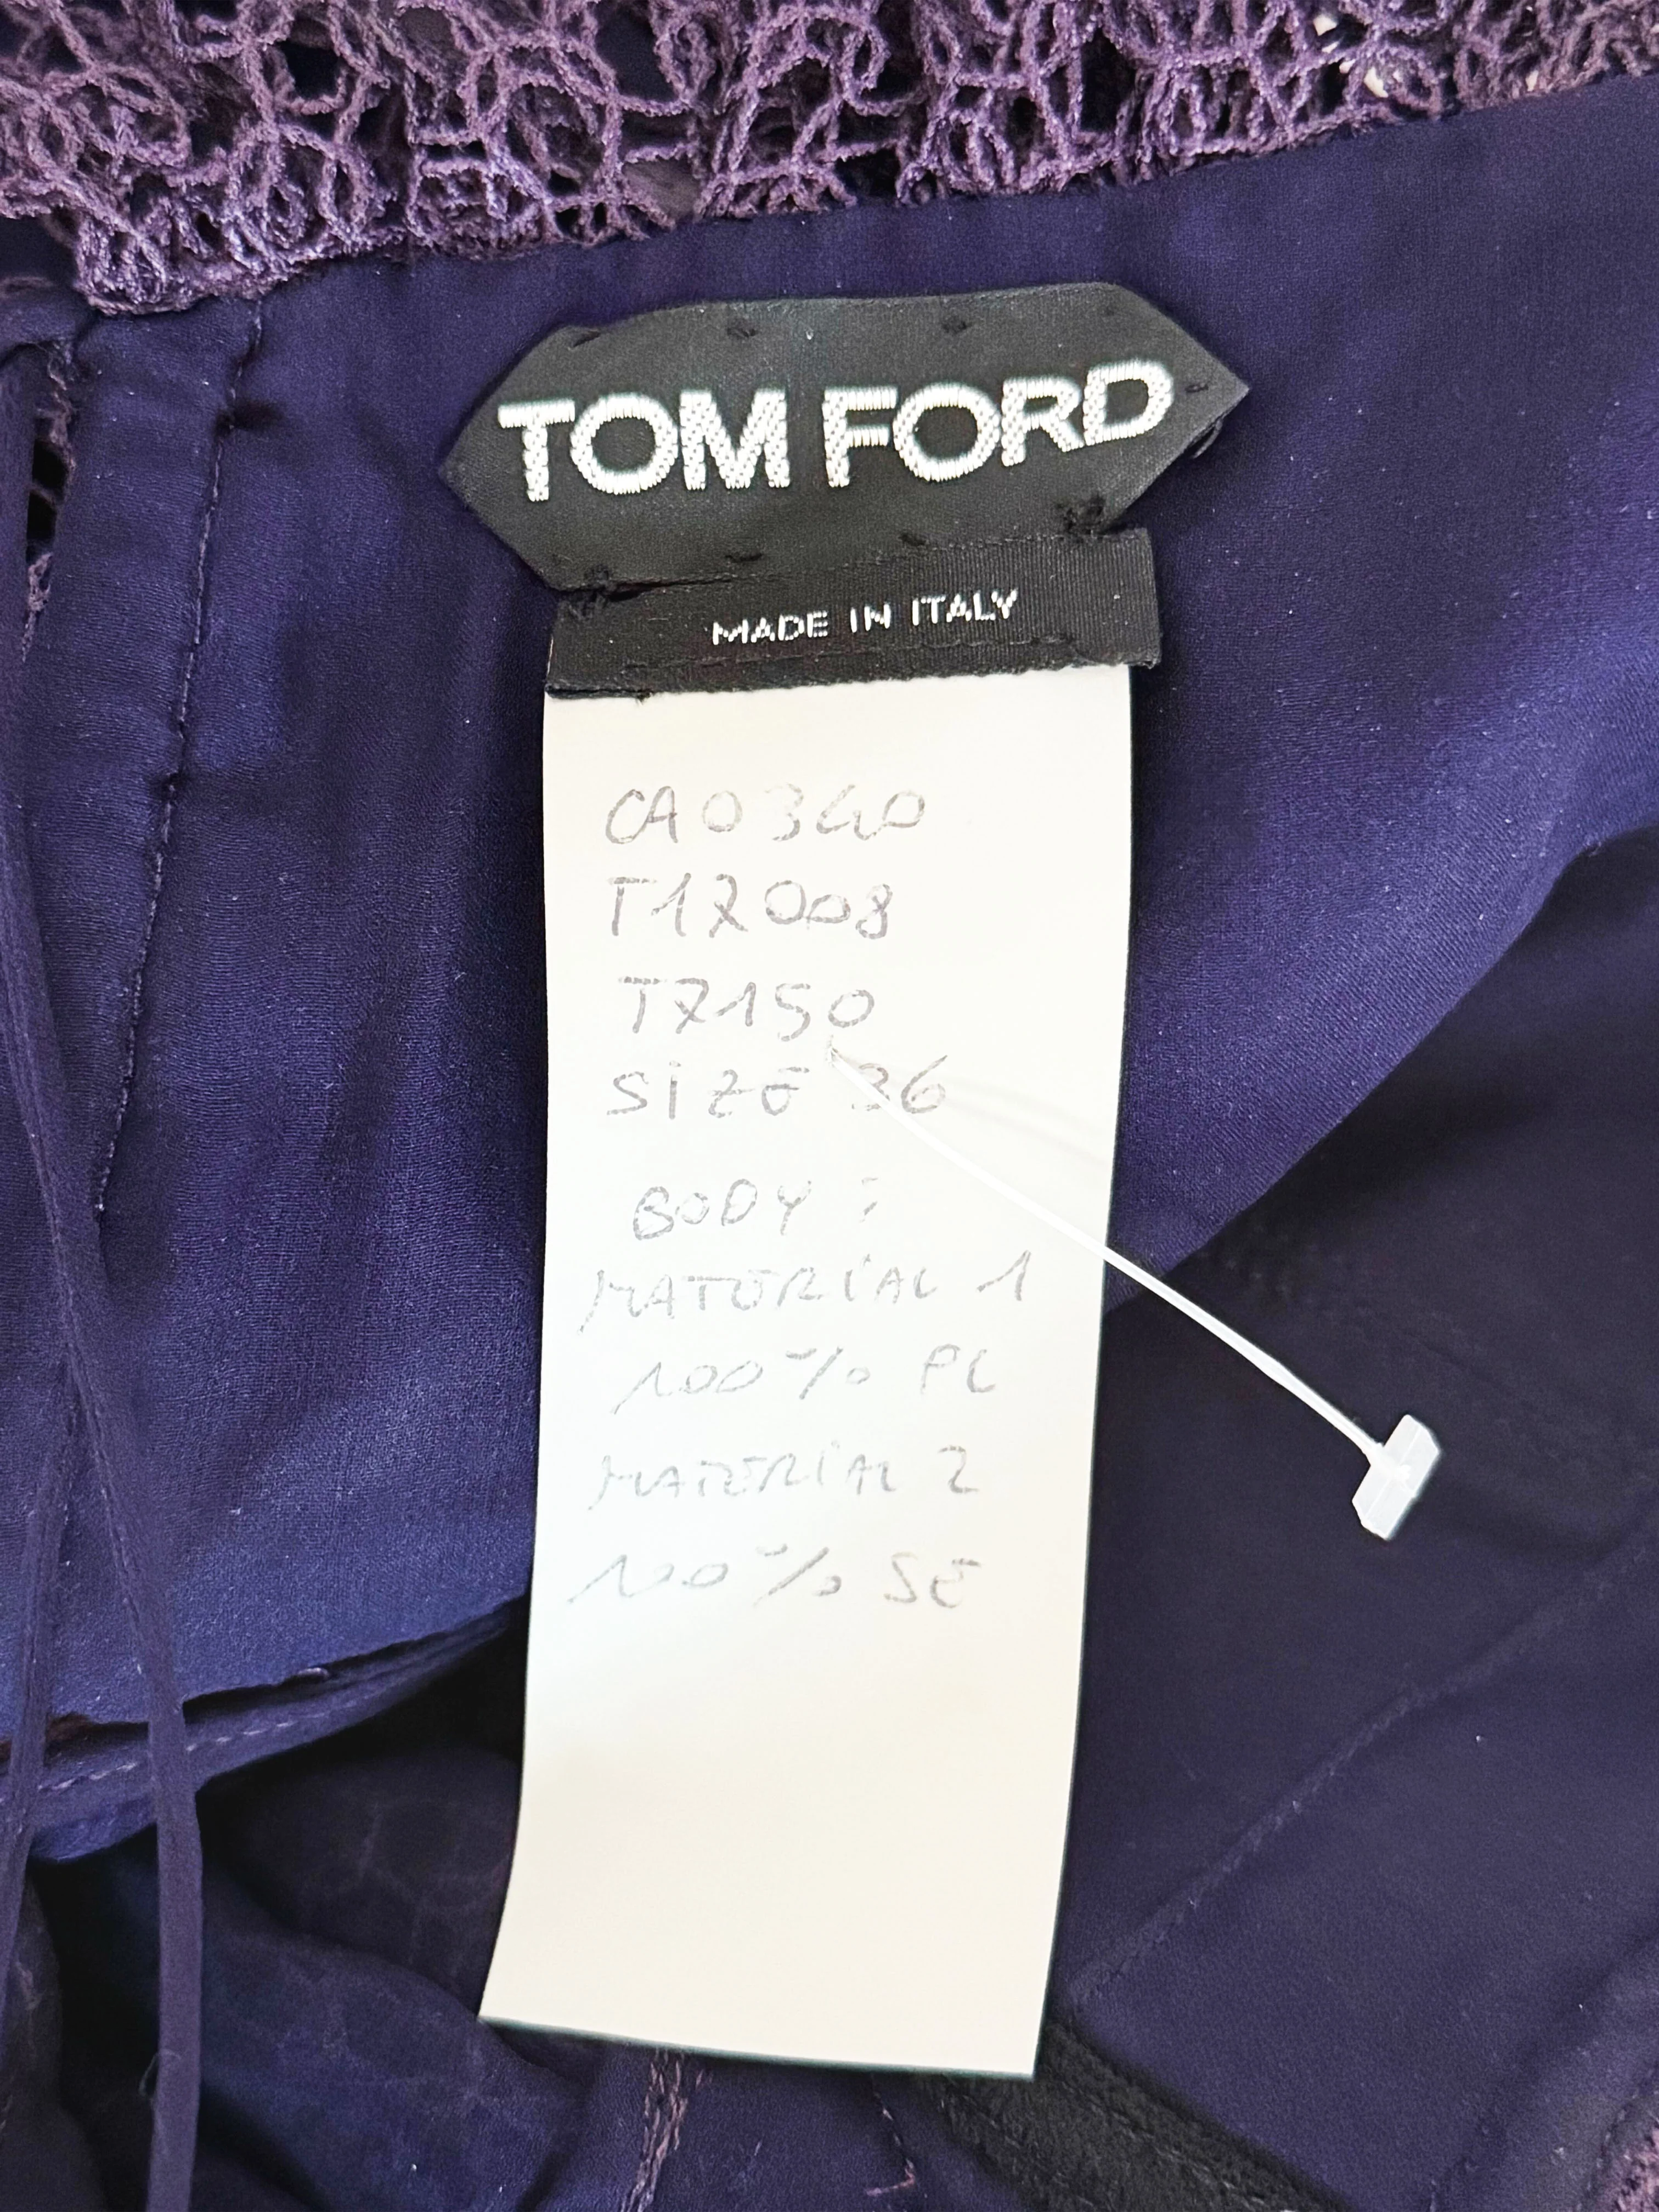 TOM FORD
MADE IN ITALY
CA0340
T17008
T7150
SIZE 36
BODY :
MATERIAL 1
100% PL
MATERIAL 2
100% SE